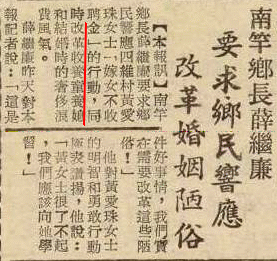 南竿鄉長薛繼廉
要求鄉民響應
改革婚姻陋俗
【本報訊】南竿
鄉長薛繼廉要求鄉
民響應四維村黃愛
珠女士「嫁女不收
聘金」的行動,同
時改革收養童養媳
和結婚時的奢侈浪
費風氣。
薛繼廉昨天對本
報記者說:「這是
件好事情,我們實
在需要改革這些陋
俗!」
他對黃愛珠女士
的明智和勇敢行動
極表讚揚,他說:
「黃女士很了不起
,我們應該向她學
習!」